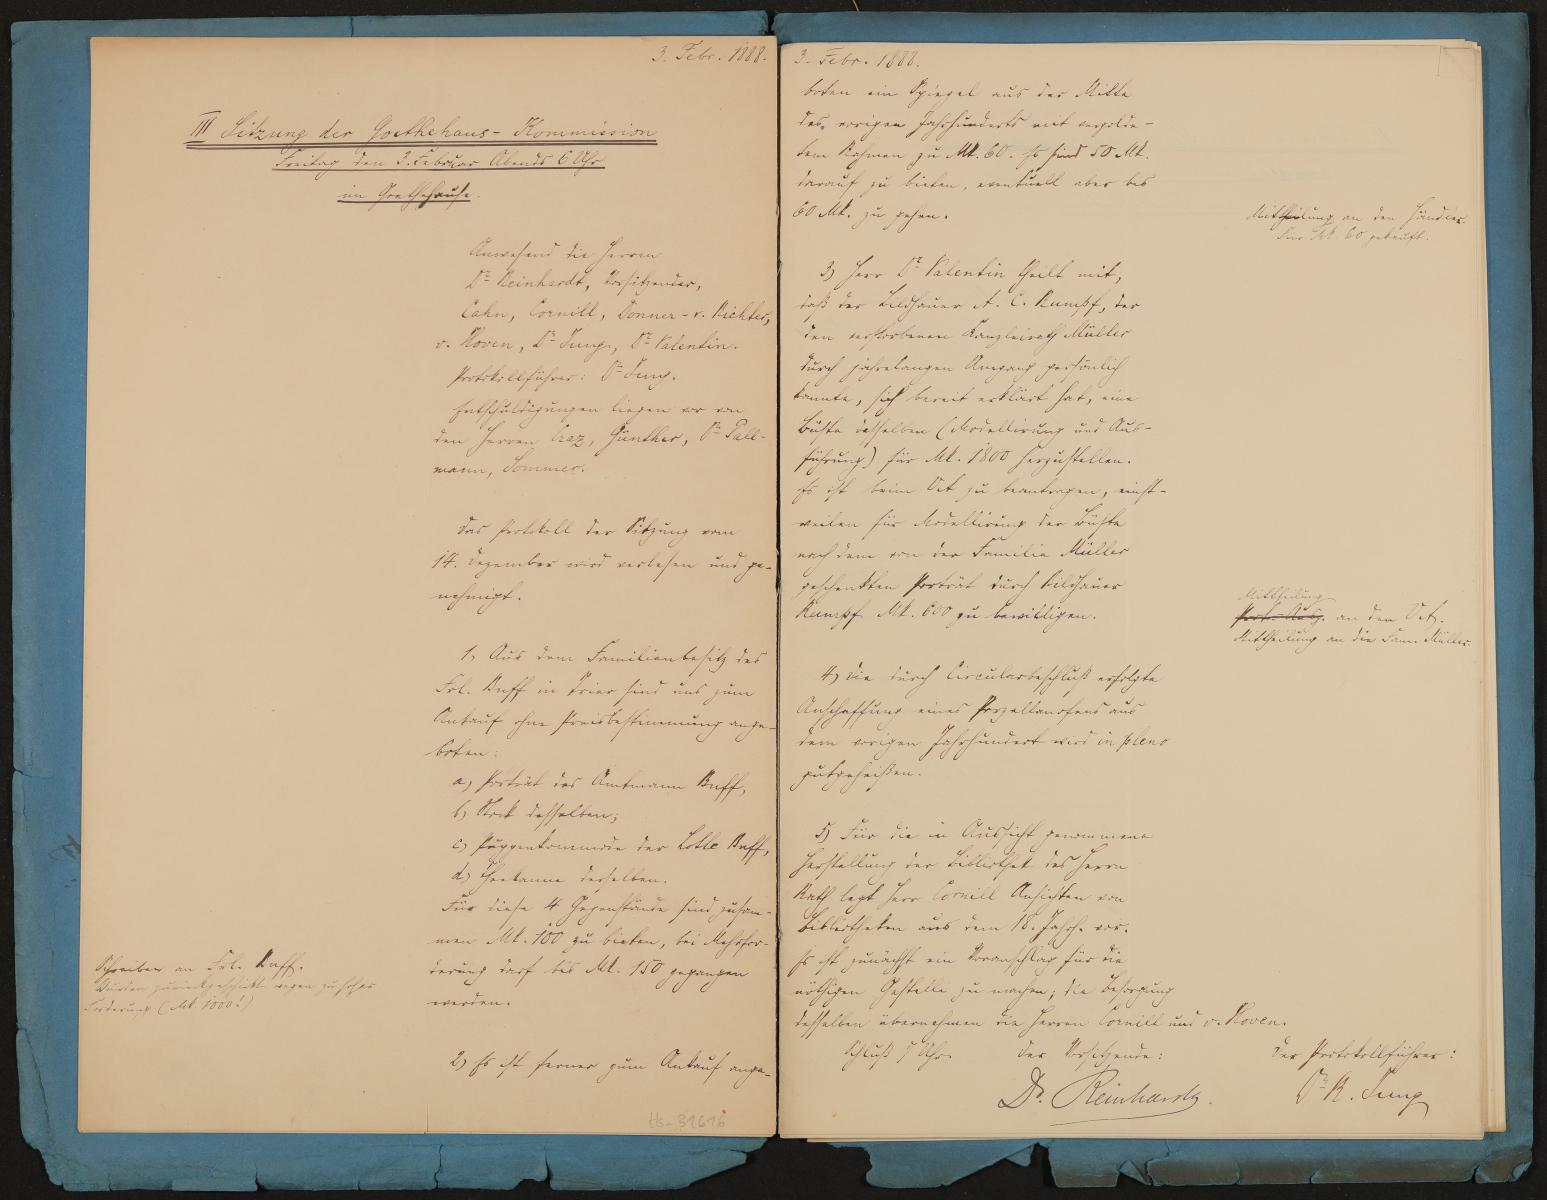 3. Febr. 1888.
III Sitzung der Goethehaus-Kommission
Freitag den 3. Februar Abends 6 Uhr
im Goethehause.
Anwesend die Herren
Dr. Reinhardt, Vorsitzender,
Cahn, Cornill, Donner-v. Richter,
v. Hoven, Dr. Jung, Dr. Valentin.
Protokollführer: Dr. Jung.
Entschuldigungen liegen vor von
den Herren Craz, Günther, Dr. Pall-
mann, Sommer.
Das Protokoll der Sitzung vom
14. Dezember wird verlesen und ge-
nehmigt.
1, Aus dem Familienbesitz des
Frl. Buff in Trier sind uns zum
Ankauf ohne Preisbestimmung ange-
boten:
a, Porträt des Amtmann Buff,
b, Stock desselben;
c, Puppenkommode der Lotte Buff,
d, Theekanne derselben.
Für diese 4 Gegenstände sind zusam-
men Mk. 100 zu bieten, bei Mehrfor-
derung darf bis Mk. 150 gegangen
werden.
Schreiben an Frl. Buff.
Wurden zurückgeschickt wegen zu hoher
Forderung (Mk 1000!)
2) Es ist ferner zum Ankauf ange-
Hs-31616
3. Febr. 1888.
boten ein Spiegel aus der Mitte
des vorigen Jahrhunderts mit vergolde-
tem Rahmen zu Mk. 60. Es sind 50 Mk.
darauf zu bieten, eventuell aber bis
60 Mk. zu gehen.
Mittheilung an den Händler.
Für Mk. 60 gekauft.
3) Herr Dr. Valentin theilt mit,
daß der Bildhauer A. C. Rumpf, der
den verstorbenen Kanzleirath Müller
durch jahrelangen Umgang persönlich
kannte, sich bereit erklärt hat, eine
Büste desselben (Modellirung und Aus-
führung) für Mk. 1800 herzustellen.
Es ist beim VA zu beantragen, einst-
weilen für Modellirung der Büste
nach dem von der Familie Müller
geschenkten Porträt durch Bildhauer
Rumpf Mk. 600 zu bewilligen.
Mittheilung
Prot.-Ausz. an den VA.
Mittheilung an die Fam. Müller.
4) Die durch Circularbeschluß erfolgte
Anschaffung eines Porzellanofens aus
dem vorigen Jahrhundert wird in pleno
gutgeheißen.
5) Für die in Aussicht genommene
Herstellung der Bibliothek des Herrn
Rath legt Herr Cornill Ansichten von
Bibliotheken aus dem 18. Jahrh. vor.
Es ist zunächst ein Voranschlag für die
nöthigen Gestelle zu machen; die Besorgung
desselben übernehmen die Herren Cornill und v. Hoven.
Schluß 7 Uhr. Der Vorsitzende: Der Protokollführer:
Dr. Reinhardt. Dr. R. Jung